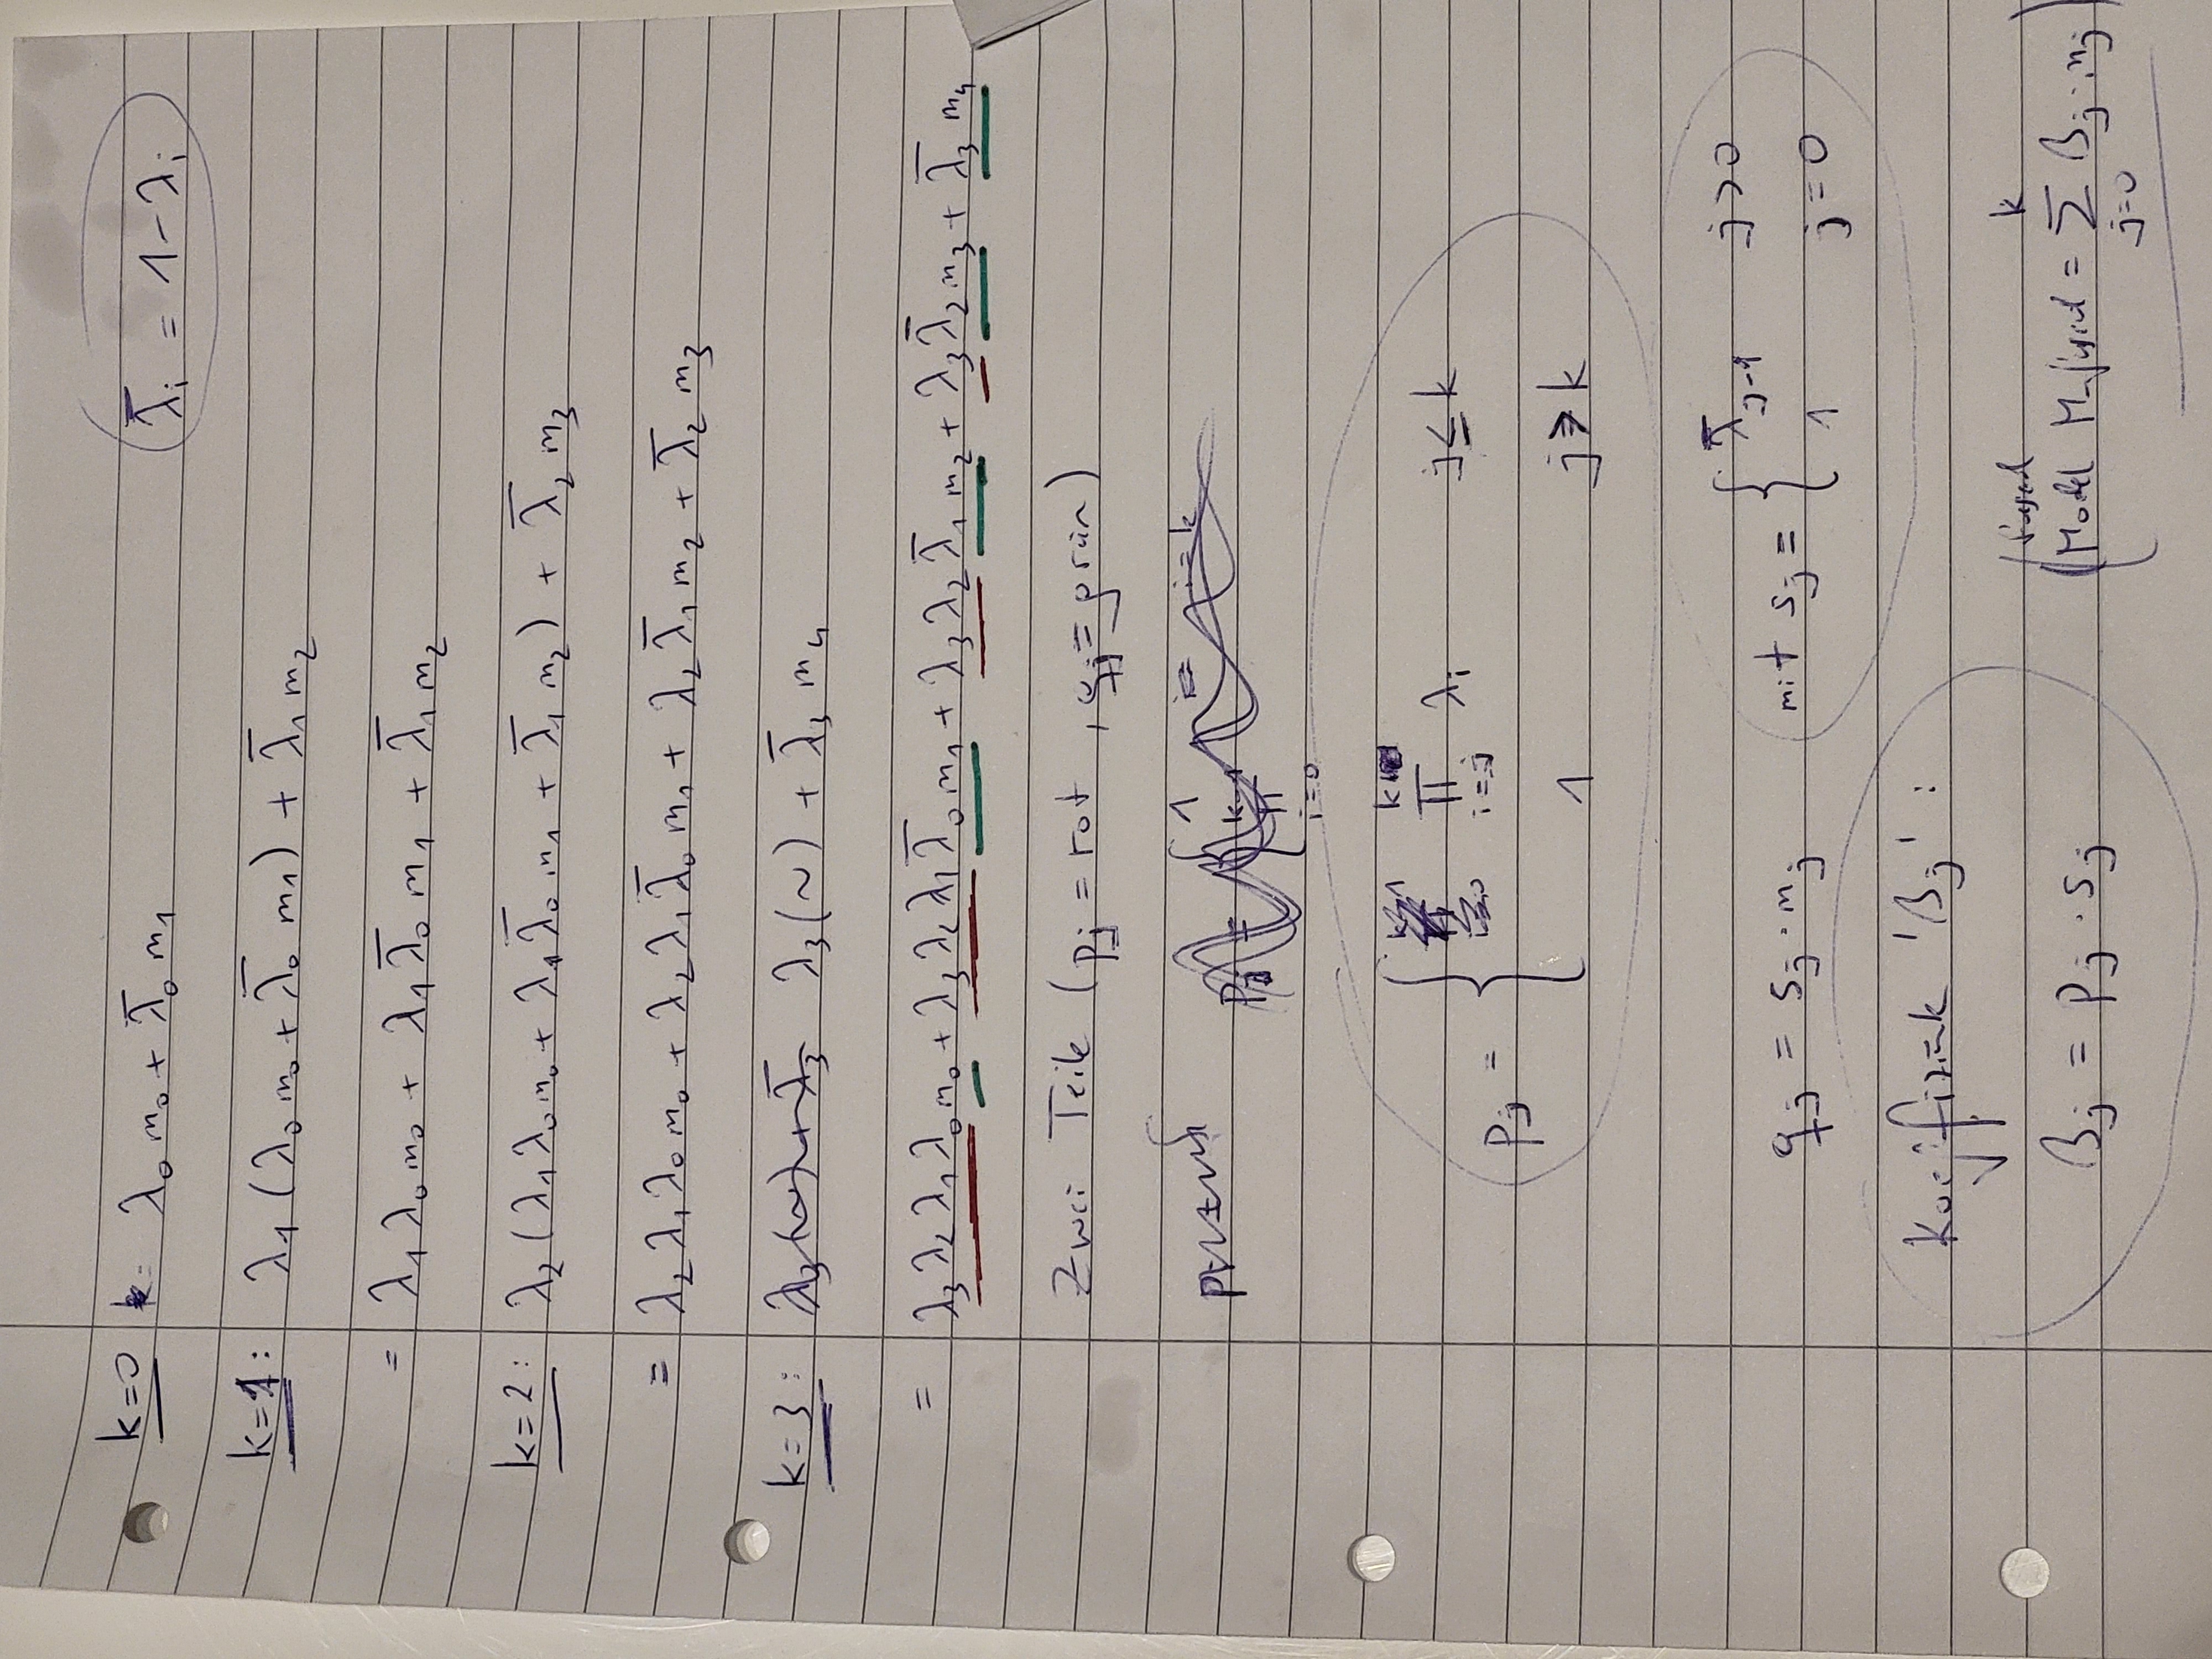 k=0 λ₀ m₀ + λ̄₀ m₁ λ̄ᵢ = 1 - λᵢ
k=1: λ₁ (λ₀ m₀ + λ̄₀ m₁) + λ̄₁ m₂
= λ₁ λ₀ m₀ + λ₁ λ̄₀ m₁ + λ̄₁ m₂
k=2: λ₂ (λ₁ λ₀ m₀ + λ₁ λ̄₀ m₁ + λ̄₁ m₂) + λ̄₂ m₃
= λ₂ λ₁ λ₀ m₀ + λ₂ λ₁ λ̄₀ m₁ + λ₂ λ̄₁ m₂ + λ̄₂ m₃
k=3: λ₃(~) + λ̄₃ λ₃(~) + λ̄₃ m₄
= λ₃ λ₂ λ₁ λ₀ m₀ + λ₃ λ₂ λ₁ λ̄₀ m₁ + λ₃ λ₂ λ̄₁ m₂ + λ₃ λ̄₂ m₃ + λ̄₃ m₄
Zwei Teile (pⱼ = rot , qⱼ = grün)
k
∏ λᵢ j ≤ k
pⱼ = { i=j
1 j > k
λ̄ⱼ₋₁ j > 0
qⱼ = sⱼ · mⱼ mit sⱼ = {
1 j = 0
Koeffizienk 'βⱼ' :
fused k
βⱼ = pⱼ · sⱼ (Model M_fused = Σ βⱼ · mⱼ)
j=0